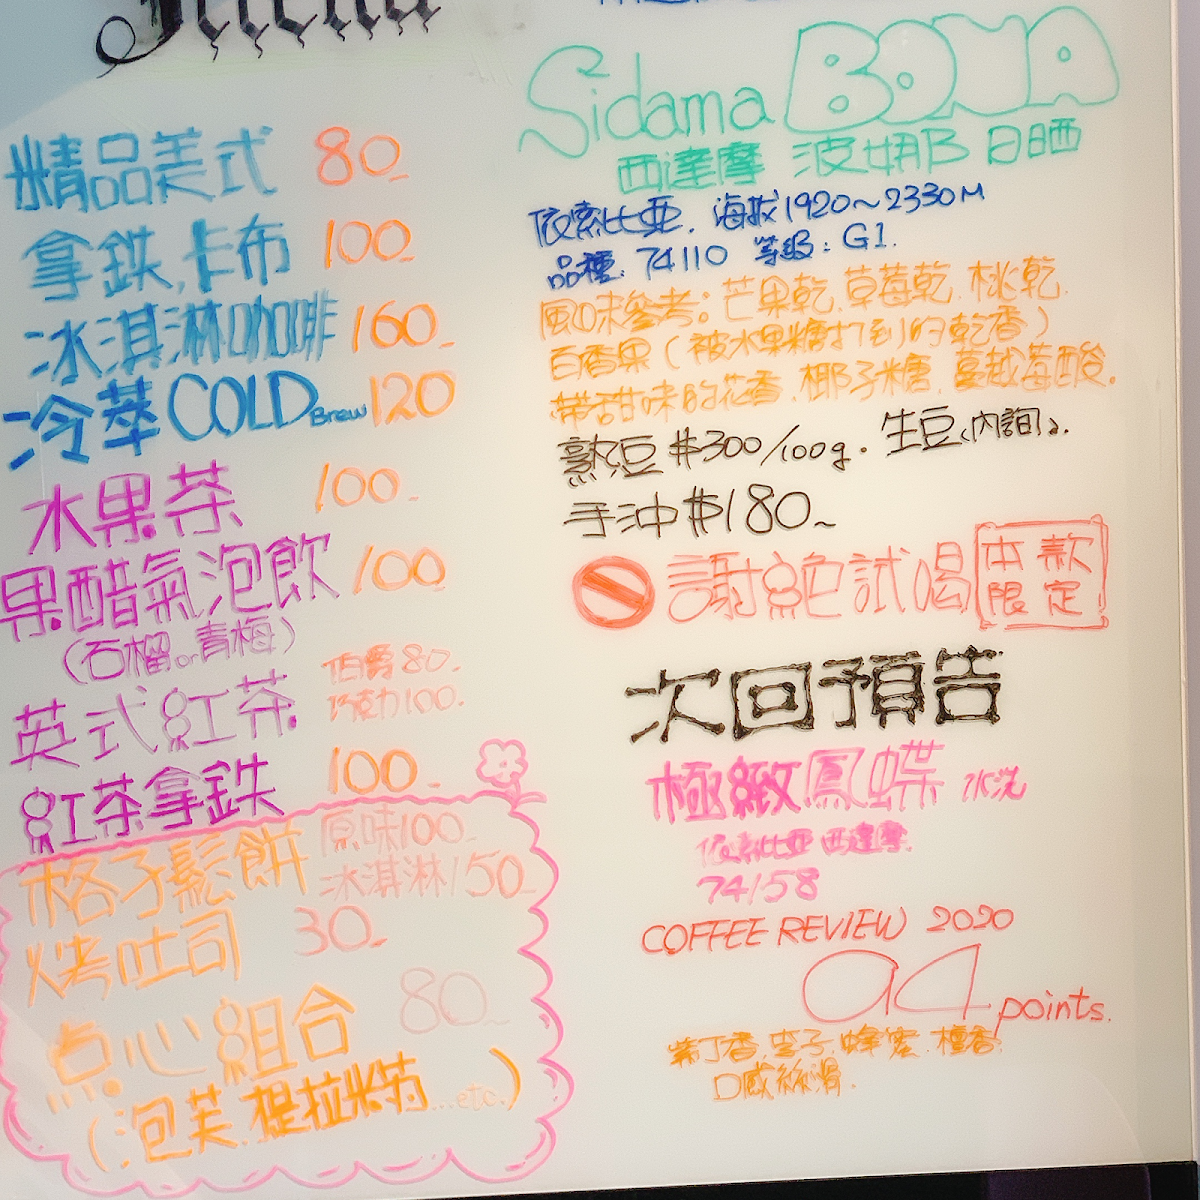 Menu
精品美式 80.
拿鉄.卡布 100.
冰淇淋咖啡 160.
冷萃COLD Brew 120
水果茶 100.
果醋氣泡飲 100.
(石榴or青梅)
英式紅茶 伯爵 80.
巧克力 100.
紅茶拿鉄 100.
格子鬆餅 原味100.
冰淇淋150.
烤吐司 30.
点心組合 80~
(泡芙.提拉米苏...etc.)
Sidama BONA
西達摩 波娜 日晒
依索比亞. 海拔1920~2330M
品種:74110 等級:G1.
風味參考:芒果乾.草莓乾.桃乾.
百香果(被水果糖打到的乾香)
帶甜味的花香.椰子糖.蔓越莓酸.
熟豆 $300/100g. 生豆(內詢).
手沖$180~
謝絕試喝 本款
限定
次回預告
極緻鳳蝶 水洗
依索比亞 西達摩.
74158
COFFEE REVIEW 2020
94 points.
紫丁香.李子.蜂蜜.檀香.
口感絲滑.